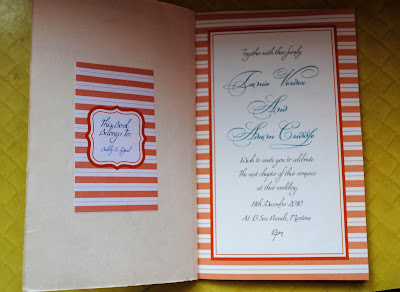 This Book
Belongs to:
Together with their family
And
Adam
Wish to invite you to celebrate
The next chapter of their romance
at their wedding
11th December 2010
At 13 Sea Parade, Mentone
12pm